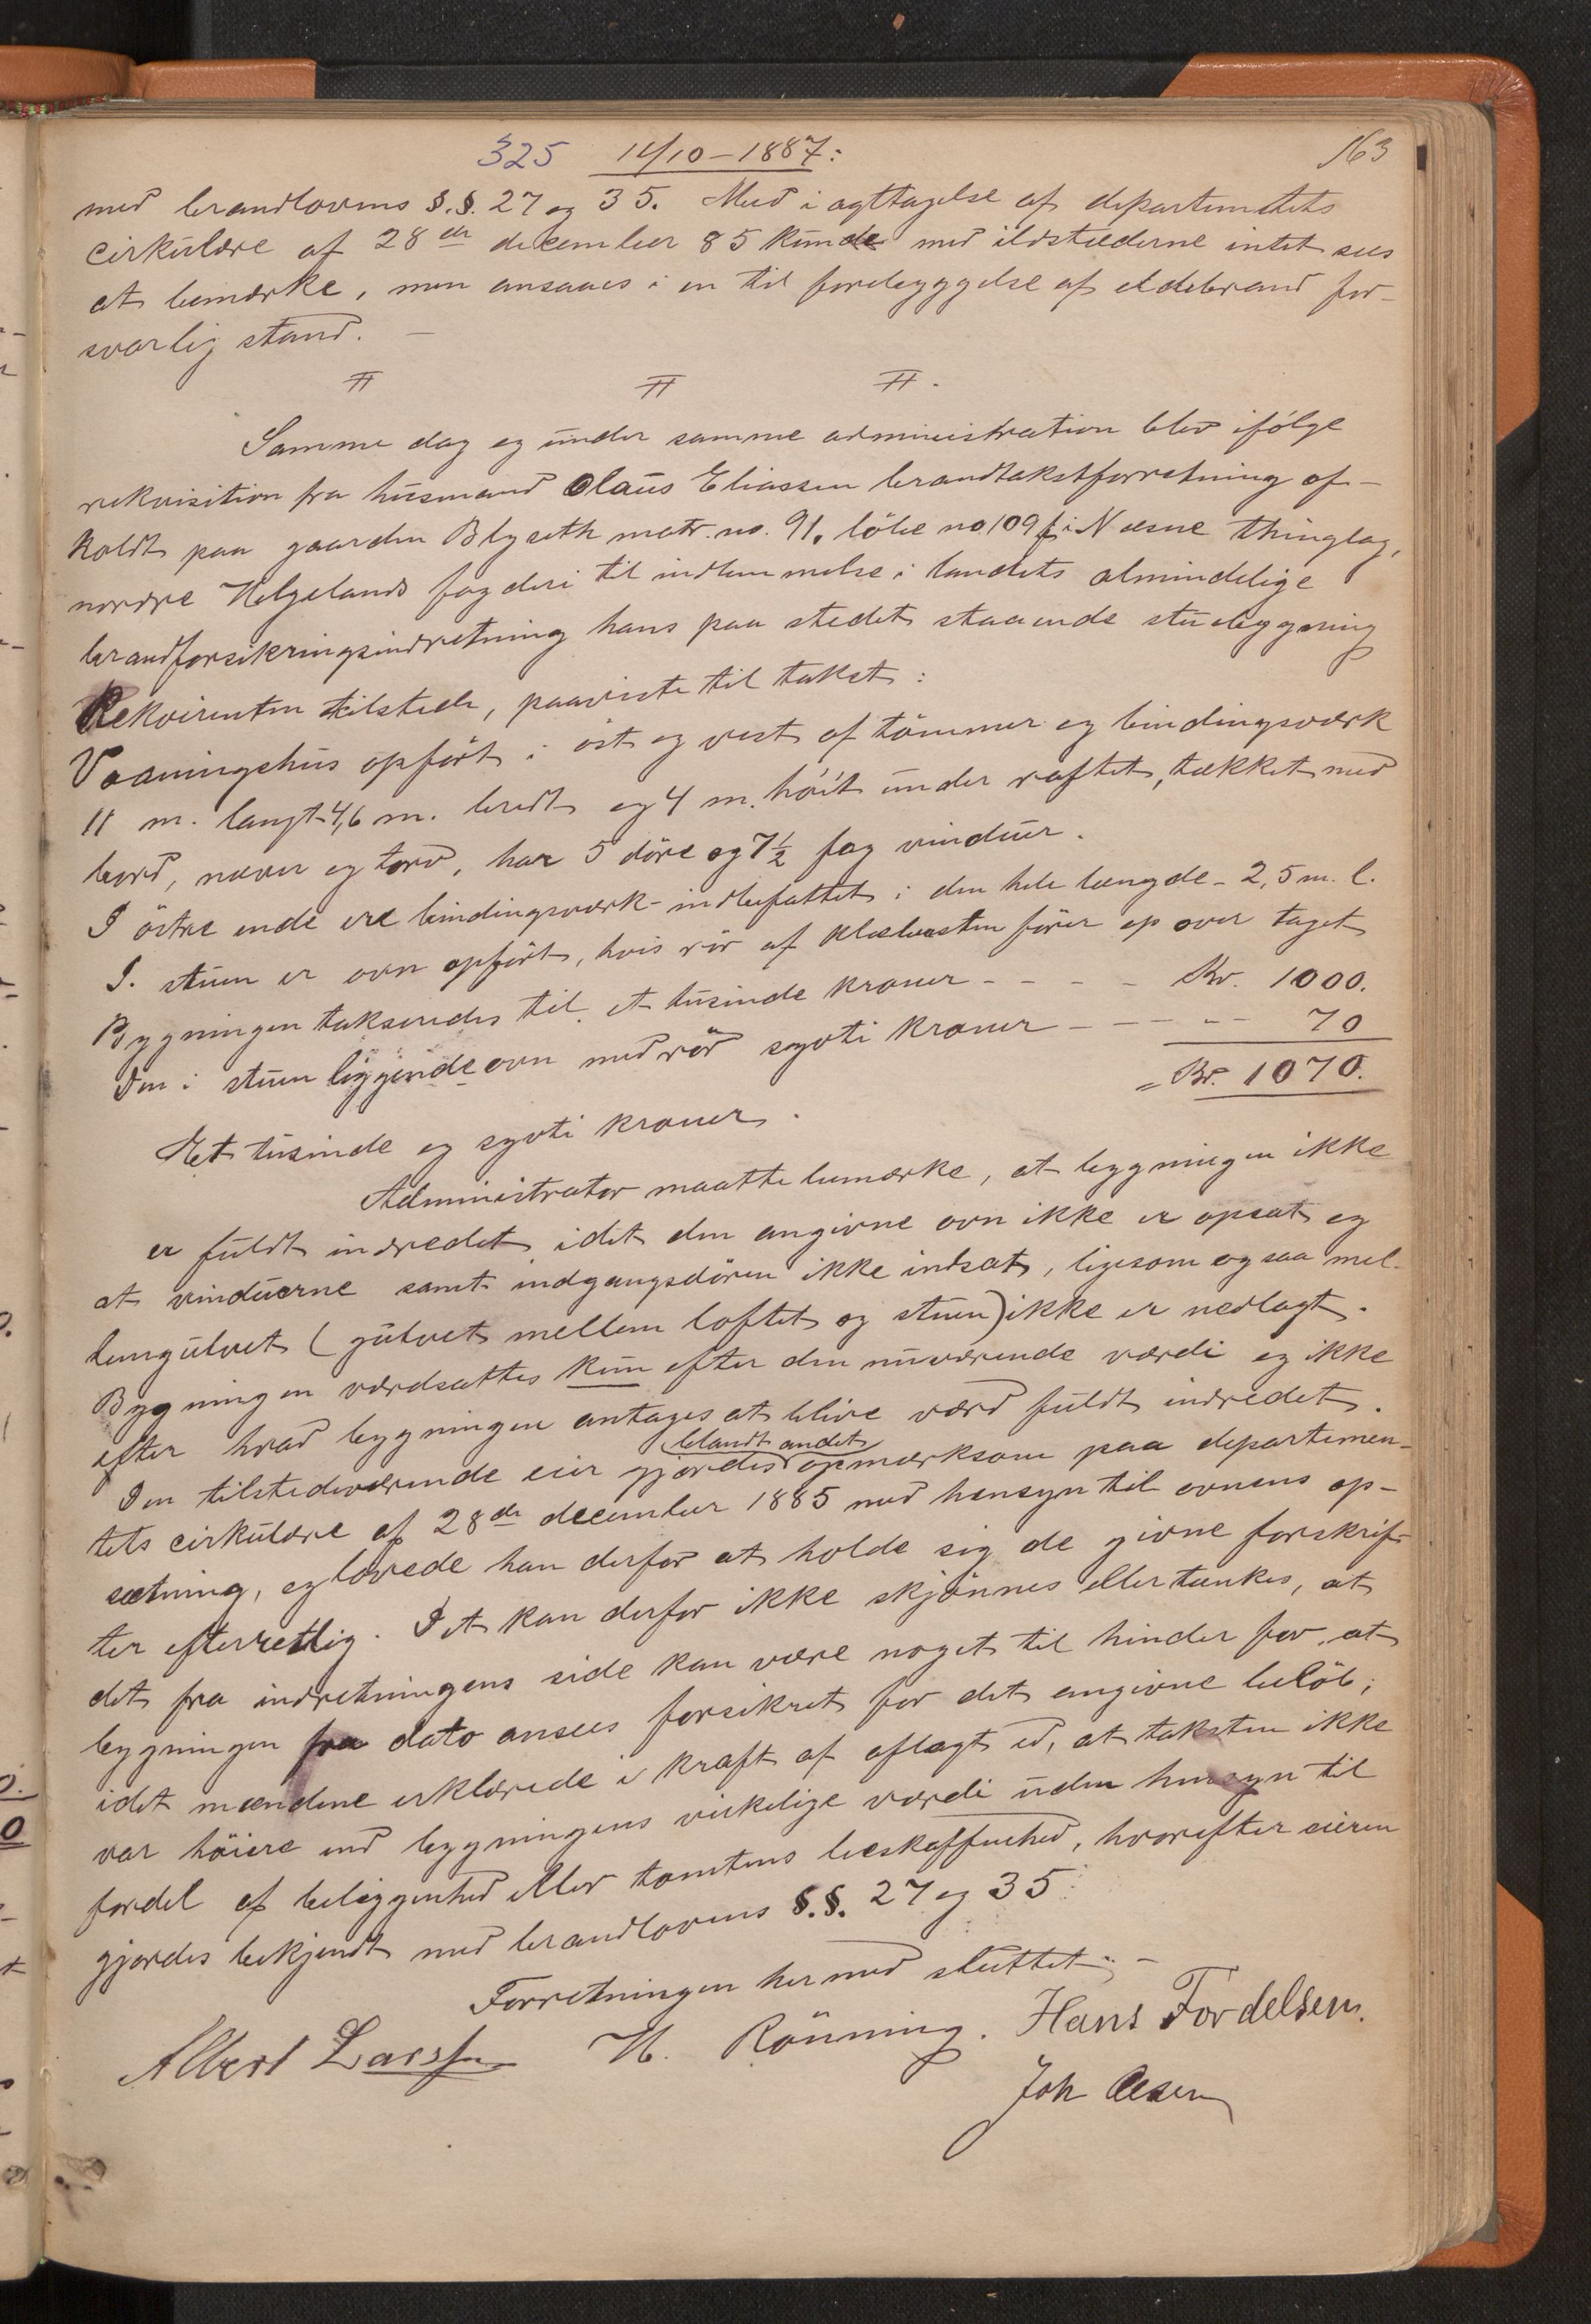 325 14/10-1887: 163
med brandlovens §.§. 27 og 35. Med iagttagelse af departemetets
cirkulære af 28de december 85 kunde med ildstæderne intet sees
at bemærke, men ansaaes i en til forebyggelse af ildebrand for-
svarlig stand. —
# # #.
Samme dag og under samme administration blev ifølge
rekvisition fra husmand Olaus Eliassen brandtakstforretning af-
holdt paa gaarden Blyseth matr. no. 91. löbe no 109 f i Næsne thinglag,
nordre Helgelands fogderi til indlemmelse i landets almindelige
brandforsikringsindretning hans paa stedet staaende stuebygning
Rekvirenten tilstede, paaviste til takst:
Vaaningshus opfört i öst og vest af tömmer og bindingsværk
11 m. langt 4,6 m. bredt og 4 m. höit under raftet, tækket med
bord, næver og torv, har 5 döre og 7½ fag vinduer.
I östre ende ere bindingsværk-indbefattet i den hele længde - 2,5 m. l.
I. stuen er ovn opfört, hvis rör af klæbersten förer op over taget
Bygningen takseredes til et tusinde kroner - - - - Kr. 1000.
Den i stuen liggende ovn med rör syvti kroner - - - - - 70
= Kr. 1070.
Et tusinde og syvti kroner.
Administrator maatte bemærke, at bygningen ikke
er fuldt indredet idet den angivne ovn ikke er opsat og
at vinduerne samt indgangsdören ikke indsat, ligesom ogsaa mel-
lemgulvet (gulvet mellem loftet og stuen) ikke er nedlagt.
Bygningen værdsattes kun efter den nuværende værdi og ikke
efter hvad bygningen antages at blive værd fuldt indredet.
blandt andet
Den tilstedeværende eier gjordes opmærksom paa departemen-
tets cirkulære af 28de december 1885 med hensyn til ovnens op-
sætning, og lovede han derfor at holde sig de givne forskrif-
ter efterretlig. Det kan derfor ikke skjönnes eller tænkes, at
det fra indretningens side kan være noget til hinder for, at
bygningen fra dato ansees forsikret for det angivne belöb;
idet mændene erklærede i kraft af aflagt ed, at taksten ikke
var höiere end bygningens virkelige værdi uden hensyn til
fordel af beliggenhed eller tomtens beskaffenhed, hvorefter eieren
gjordes bekjendt med brandlovens §.§. 27 og 35.
Forretningen hermed sluttet. —
Albert Larssen H. Rönning. Hans Fordelsen.
Joh Olsen